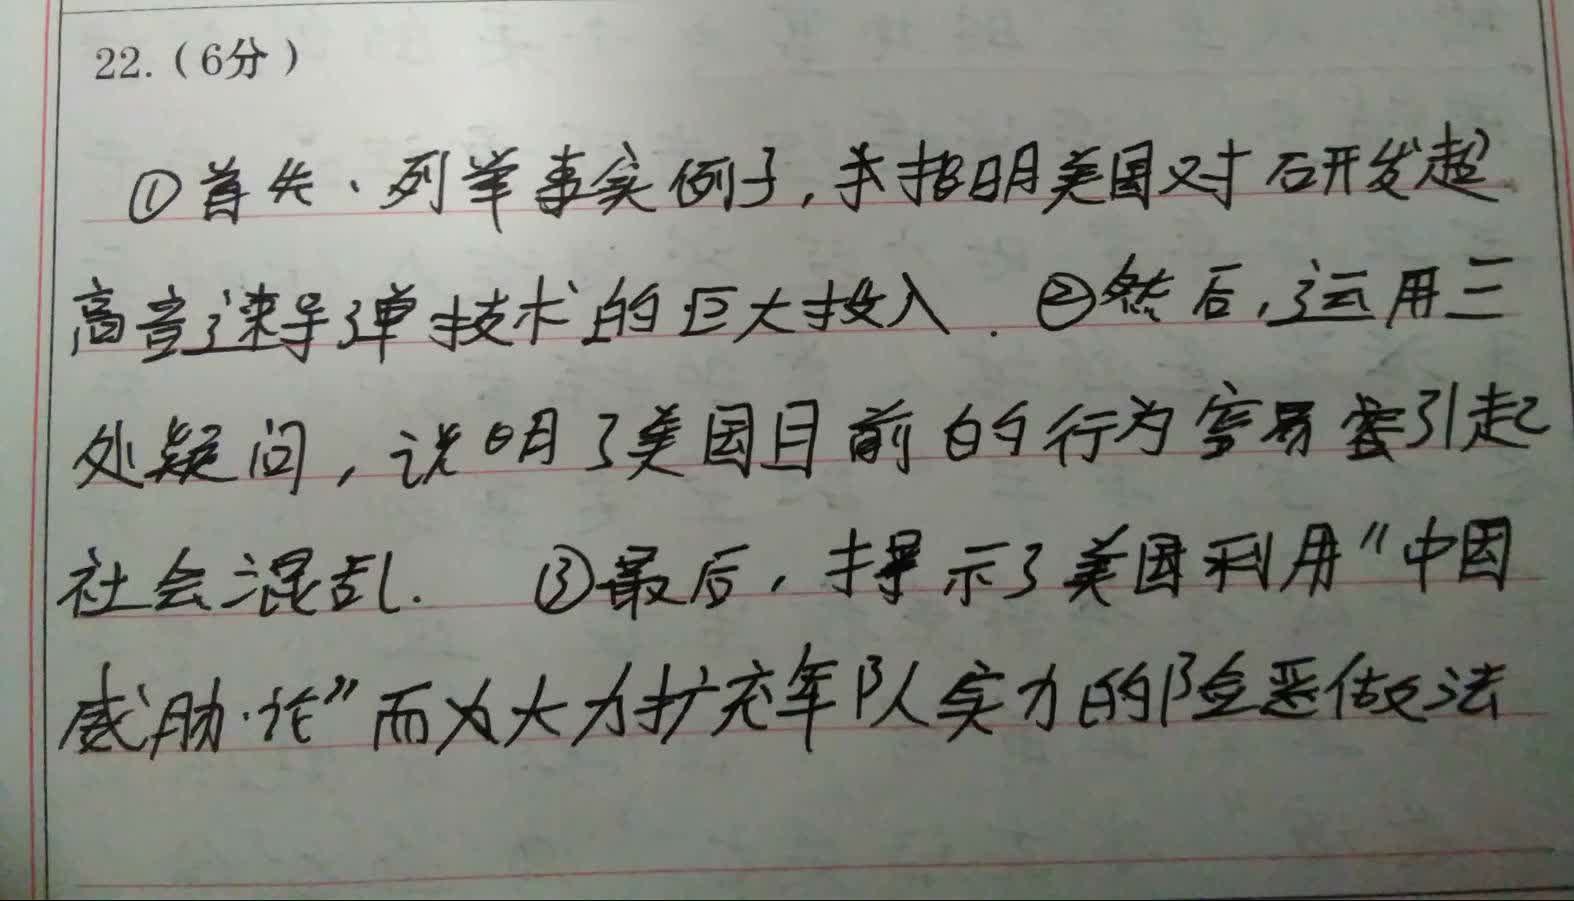 22.（6分）
①首先、列举事实例子，指明美国对研发超
高音速导弹技术的巨大投入．②然后，运用三
处疑问，说明了美国目前的行为容易引起
社会混乱．③最后，揭示了美国利用“中国
威胁论”而为大力扩充军队实力的险恶做法